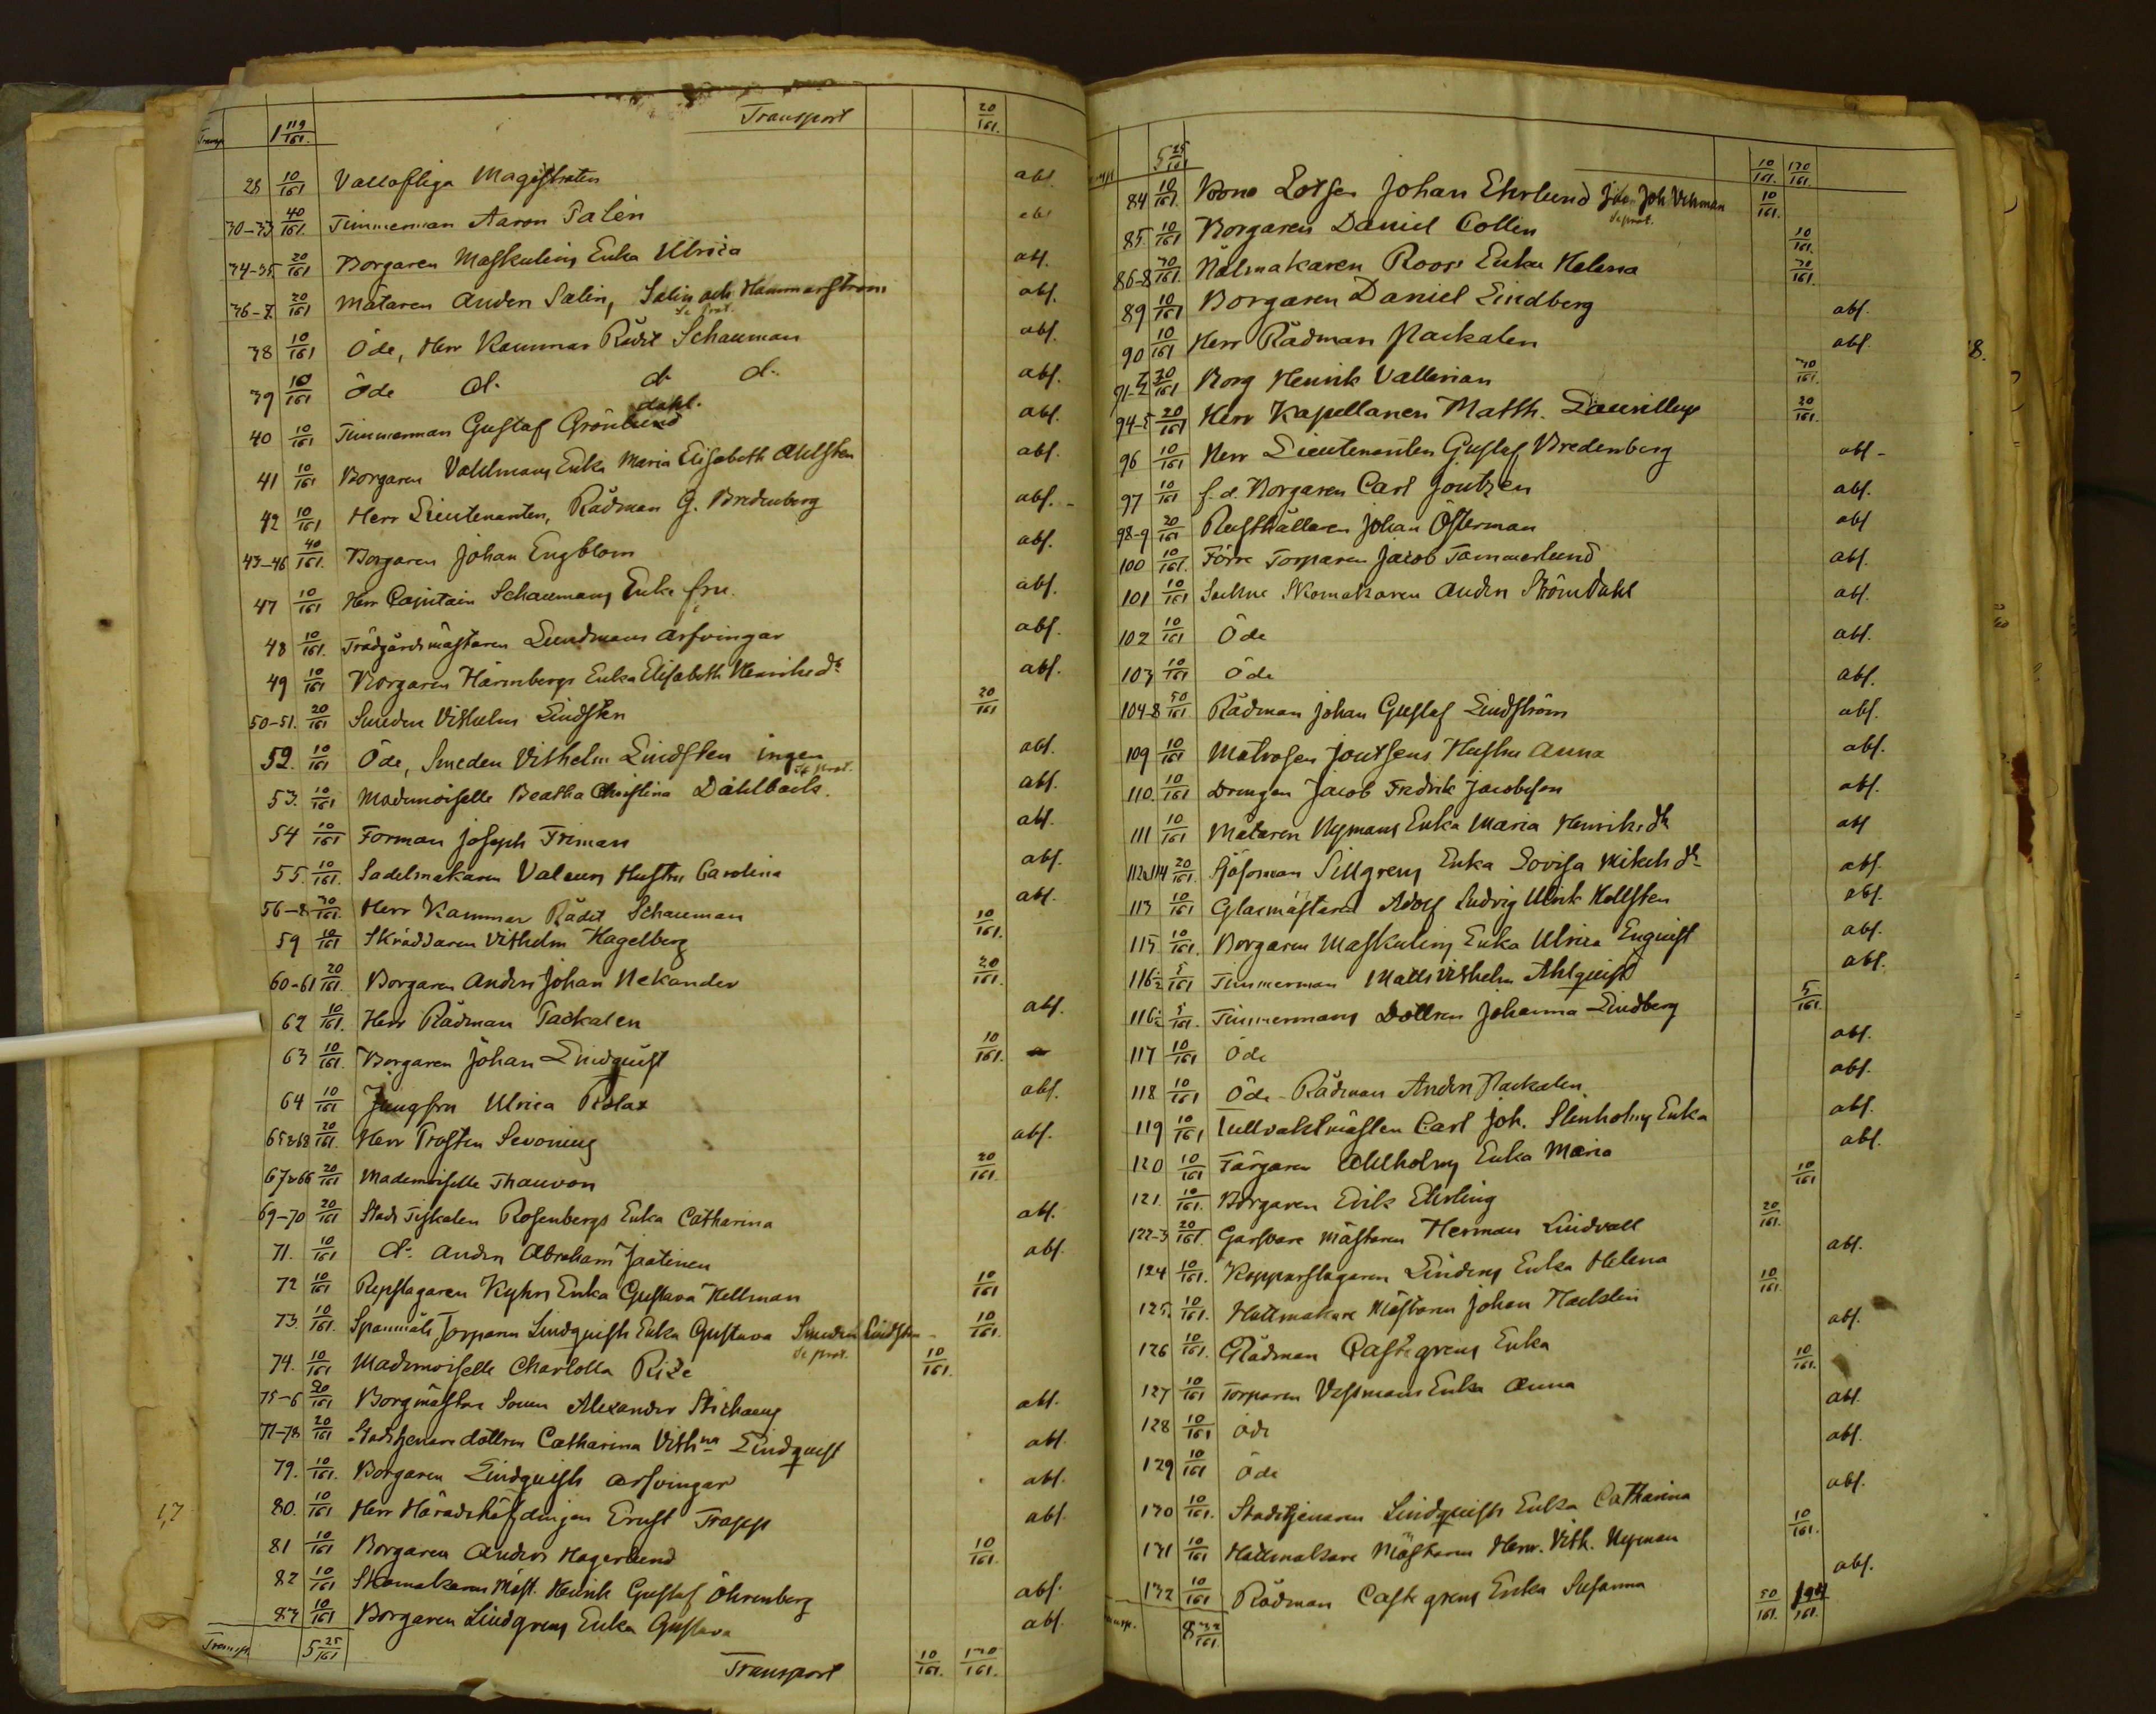 Transp. 1 119/161. Transport 20/161.
28 10/161 Vällofliga Magistraten abs.
30-33 40/161. Timmerman Aaron Salen abs
34-35 20/161 Borgaren Maskulins Enka Ulrica abs.
36-7. 20/161 Mätaren Anders Salin, Salin och Hammarström abs.
Se Prot.
38 10/161 Öde, Herr Kammar Rådet Schauman abs.
39 10/161 Öde d:o d:o d:o abs.
dahl.
40 10/161 Timmerman Gustaf Grönlund abs.
41 10/161 Borgaren Vahlmans Enka Maria Elisabeth Ahlsten abs.
42 10/161 Herr Lieutenanten, Rådman G. Bredenberg abs. -
43-46 40/161. Borgaren Johan Engblom abs.
47 10/161 Herr Capitain Schaumans Enke fru. abs.
48 10/161. Trädgårdsmästaren Lundmans Arfvingar abs.
49 10/161 Borgaren Härmbergs Enka Elisabeth Henriksdr abs.
50-51. 20/161 Smeden Vilhelm Lindsten 20/161
52. 10/161 Öde, Smeden Vilhelm Lindsten ingen abs.
se prot.
53. 10/161 Mademoiselle Beatha Christina Dahlback. abs.
54 10/161 Forman Joseph Friman abs.
55. 10/161. Sadelmakaren Valeurs Hustru Carolina abs.
56-8 30/161. Herr Kammar Rådet Schauman abs.
59 10/161 Skräddaren Vilhelm Hagelberg 10/161.
60-61 20/161. Borgaren Anders Johan Nekander 20/161.
62 10/161. Herr Rådman Packalen abs.
63 10/161. Borgaren Johan Lindquist 10/161.
64 10/161 Jungfru Ulrica Rolax abs.
65&68 20/161. Herr Prosten Sevonius abs.
67&66 20/161 Mademoiselle Thauvon 20/161.
69-70 20/161 Stads Fiskalen Rosenbergs Enka Catharina abs.
71. 10/161 d:o Anders Abraham Jaatinen abs.
72 10/161 Repslagaren Kyhrs Enka Gustava Hellman 10/161
73. 10/161. Spanmåls Torparen Lindquists Enka Gustava Smeden Lindsten 10/161.
Se prot.
74. 10/161 Mademoiselle Charlotta Rize 10/161.
75-6 20/161 Borgmästare Sonen Alexander Stichaeus abs.
77-78 20/161 Stadstjenare dottren Catharina Vilhna Lindquist abs.
79. 10/161. Borgaren Lindquists arfvingar abs.
80. 10/161 Herr Häradshöfdingen Ernst Trapp abs.
81 10/161 Borgaren Anders Hagerlund 10/161.
82 10/161 Skomakaren Mäst. Henrik Gustaf Öhrenberg abs.
83 10/161 Borgaren Lindgrens Enka Gustava abs.
Transp. 5 25/161 Transport 10/161. 130/161.
5 25/161 10/161. 130/161.
84 10/161. Krono Lotsen Johan Ehrlund Joh. Vehman 10/161.
Se prot.
85. 10/161 Borgaren Daniel Collin 10/161.
86-8 30/161. Nålmakaren Roos Enka Helena 30/161.
89 10/161 Borgaren Daniel Lindberg abs.
90 10/161 Herr Rådman Packalen abs.
20/161 Borg Henrik Vallerian 30/161.
94-5 20/161 Herr Kapellanen Matth. 20/161.
96 10/161 Herr Lieutenanten Gustaf Bredenberg abs -
97 10/161 f. d. Borgaren Carl Joutzen abs.
98-9 20/161 Rusthållaren Johan Österman abs
100 10/161. Förre Torparen Jacob Tammerlund abs.
101 10/161 Skomakaren Anders Strömdahl abs.
102 10/161 Öde abs.
103 10/161 Öde abs.
104-8 50/161 Rådman Johan Gustaf Lindström abs.
109 10/161 Matrosen Joutsens Hustru Anna abs.
110. 10/161 Drengen Jacob Fredrik Jacobsson abs.
111 10/161 Mätaren Nymans Enka Maria Henriksdr abs
112&114 20/161. Sjöman Sillgrens Enka Lovisa Mikels dr abs.
113 10/161 Glasmästaren Adolf Ludvig Ulrik Hellsten abs.
115 10/161. Borgaren Maskulins Enka Ulrica Enquist abs.
116½ 5/161 Timmerman Matts Vilhelm Ahlquist abs.
116½ 5/161. Timmermans Dottren Johanna Lindberg 5/161.
117 10/161 Öde abs.
118 10/161 Öde - Rådman Anders Packalen abs.
119 10/161 Tullvaktmästen Carl Joh. Stenholms Enka abs.
120 10/161 Färgaren Ahlholms Enka Maria abs.
121. 10/161. Borgaren Erik Ehrling 10/161
122-3 20/161. Garfvare Mästaren Herman Lindvall 20/161.
124 10/161. Kopparslagaren Lindens Enka Helena abs.
125. 10/161. Hattmakare Mästaren Johan Hacklin 10/161.
126 10/161. Rådman Castegrens Enka abs.
127 10/161 Torparen Vessmans Enka Anna 10/161.
128 10/161 öde abs.
129 10/161 Öde abs.
130 10/161. Stadstjenaren Lindquists Enka Catharina abs.
131 10/161 Hattmakare Mästaren Herm. Vilh. Nyman 10/161.
132 10/161 Rådman Castegrens Enka Susanna abs.
Transp. 50/161.